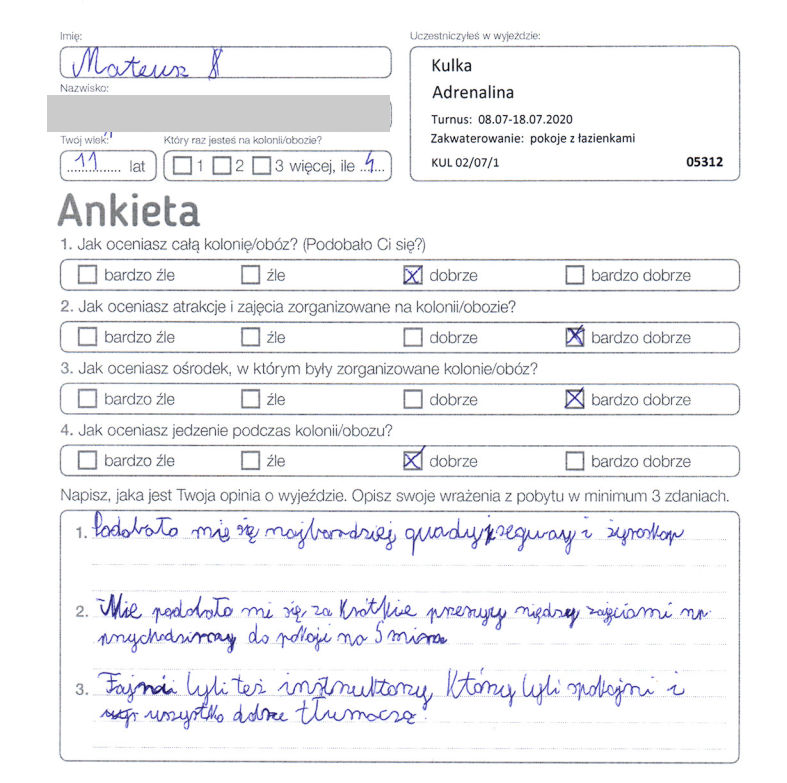 Imię:
Mateusz
Nazwisko:
Twój wiek:
11 lat
Który raz jesteś na kolonii/obozie?
1 2 3 więcej, ile 4
Uczestniczyłeś w wyjeździe:
Kulka
Adrenalina
Turnus: 08.07-18.07.2020
Zakwaterowanie: pokoje z łazienkami
KUL 02/07/1 05312
Ankieta
1. Jak oceniasz całą kolonię/obóz? (Podobało Ci się?)
bardzo źle źle dobrze bardzo dobrze
2. Jak oceniasz atrakcje i zajęcia zorganizowane na kolonii/obozie?
bardzo źle źle dobrze bardzo dobrze
3. Jak oceniasz ośrodek, w którym były zorganizowane kolonie/obóz?
bardzo źle źle dobrze bardzo dobrze
4. Jak oceniasz jedzenie podczas kolonii/obozu?
bardzo źle źle dobrze bardzo dobrze
Napisz, jaka jest Twoja opinia o wyjeździe. Opisz swoje wrażenia z pobytu w minimum 3 zdaniach.
1. Podobało mię się najbardziej quady, segway i żyroskop
2. Nie podobało mi się za krótkie przerwy między zajęciami np.
przychodzimy do pokoji na 5 min
3. Fajni byli też instruktorzy którzy byli spokojni i
wszystko dobrze tłumaczą.